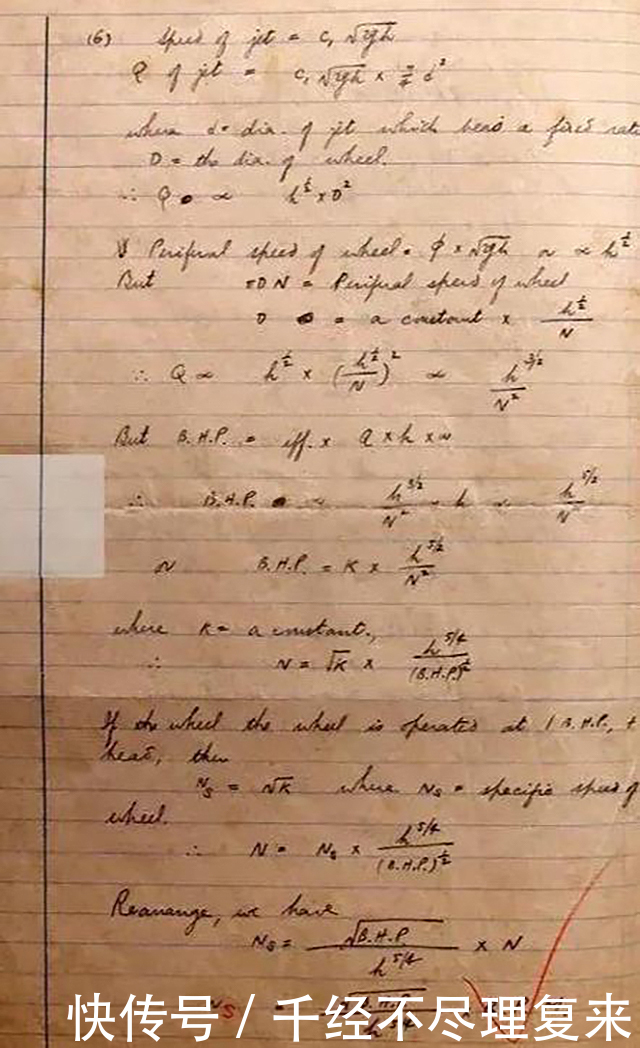 (6) Speed of jet = C, √2gh
Q of jet = C, √2gh × π/4 d²
where d = dia. of jet which bears a fixed
D = the dia. of wheel.
∴ Q ∝ h^½ × D²
Periferal speed of wheel = φ × √2gh or ∝ h^½
But πDN = Periferal speed of wheel
D = a constant × h^½/N
∴ Q ∝ h^½ × (h^½/N)² ∝ h^3/2/N²
But B.H.P. = eff. × Q × h × w
∴ B.H.P. ∝ h^3/2/N² × h ∝ h^5/2/N²
or B.H.P. = K × h^5/2/N²
where K = a constant,
∴ N = √K × h^5/4/(B.H.P.)^½
If the wheel the wheel is operated at 1 B.H.P.,
head, then
Ns = √K where Ns = specific speed of
wheel.
∴ N = Ns × h^5/4/(B.H.P.)^½
Rearrange, we have
Ns = √B.H.P./h^5/4 × N
快传号 / 千经不尽理复来